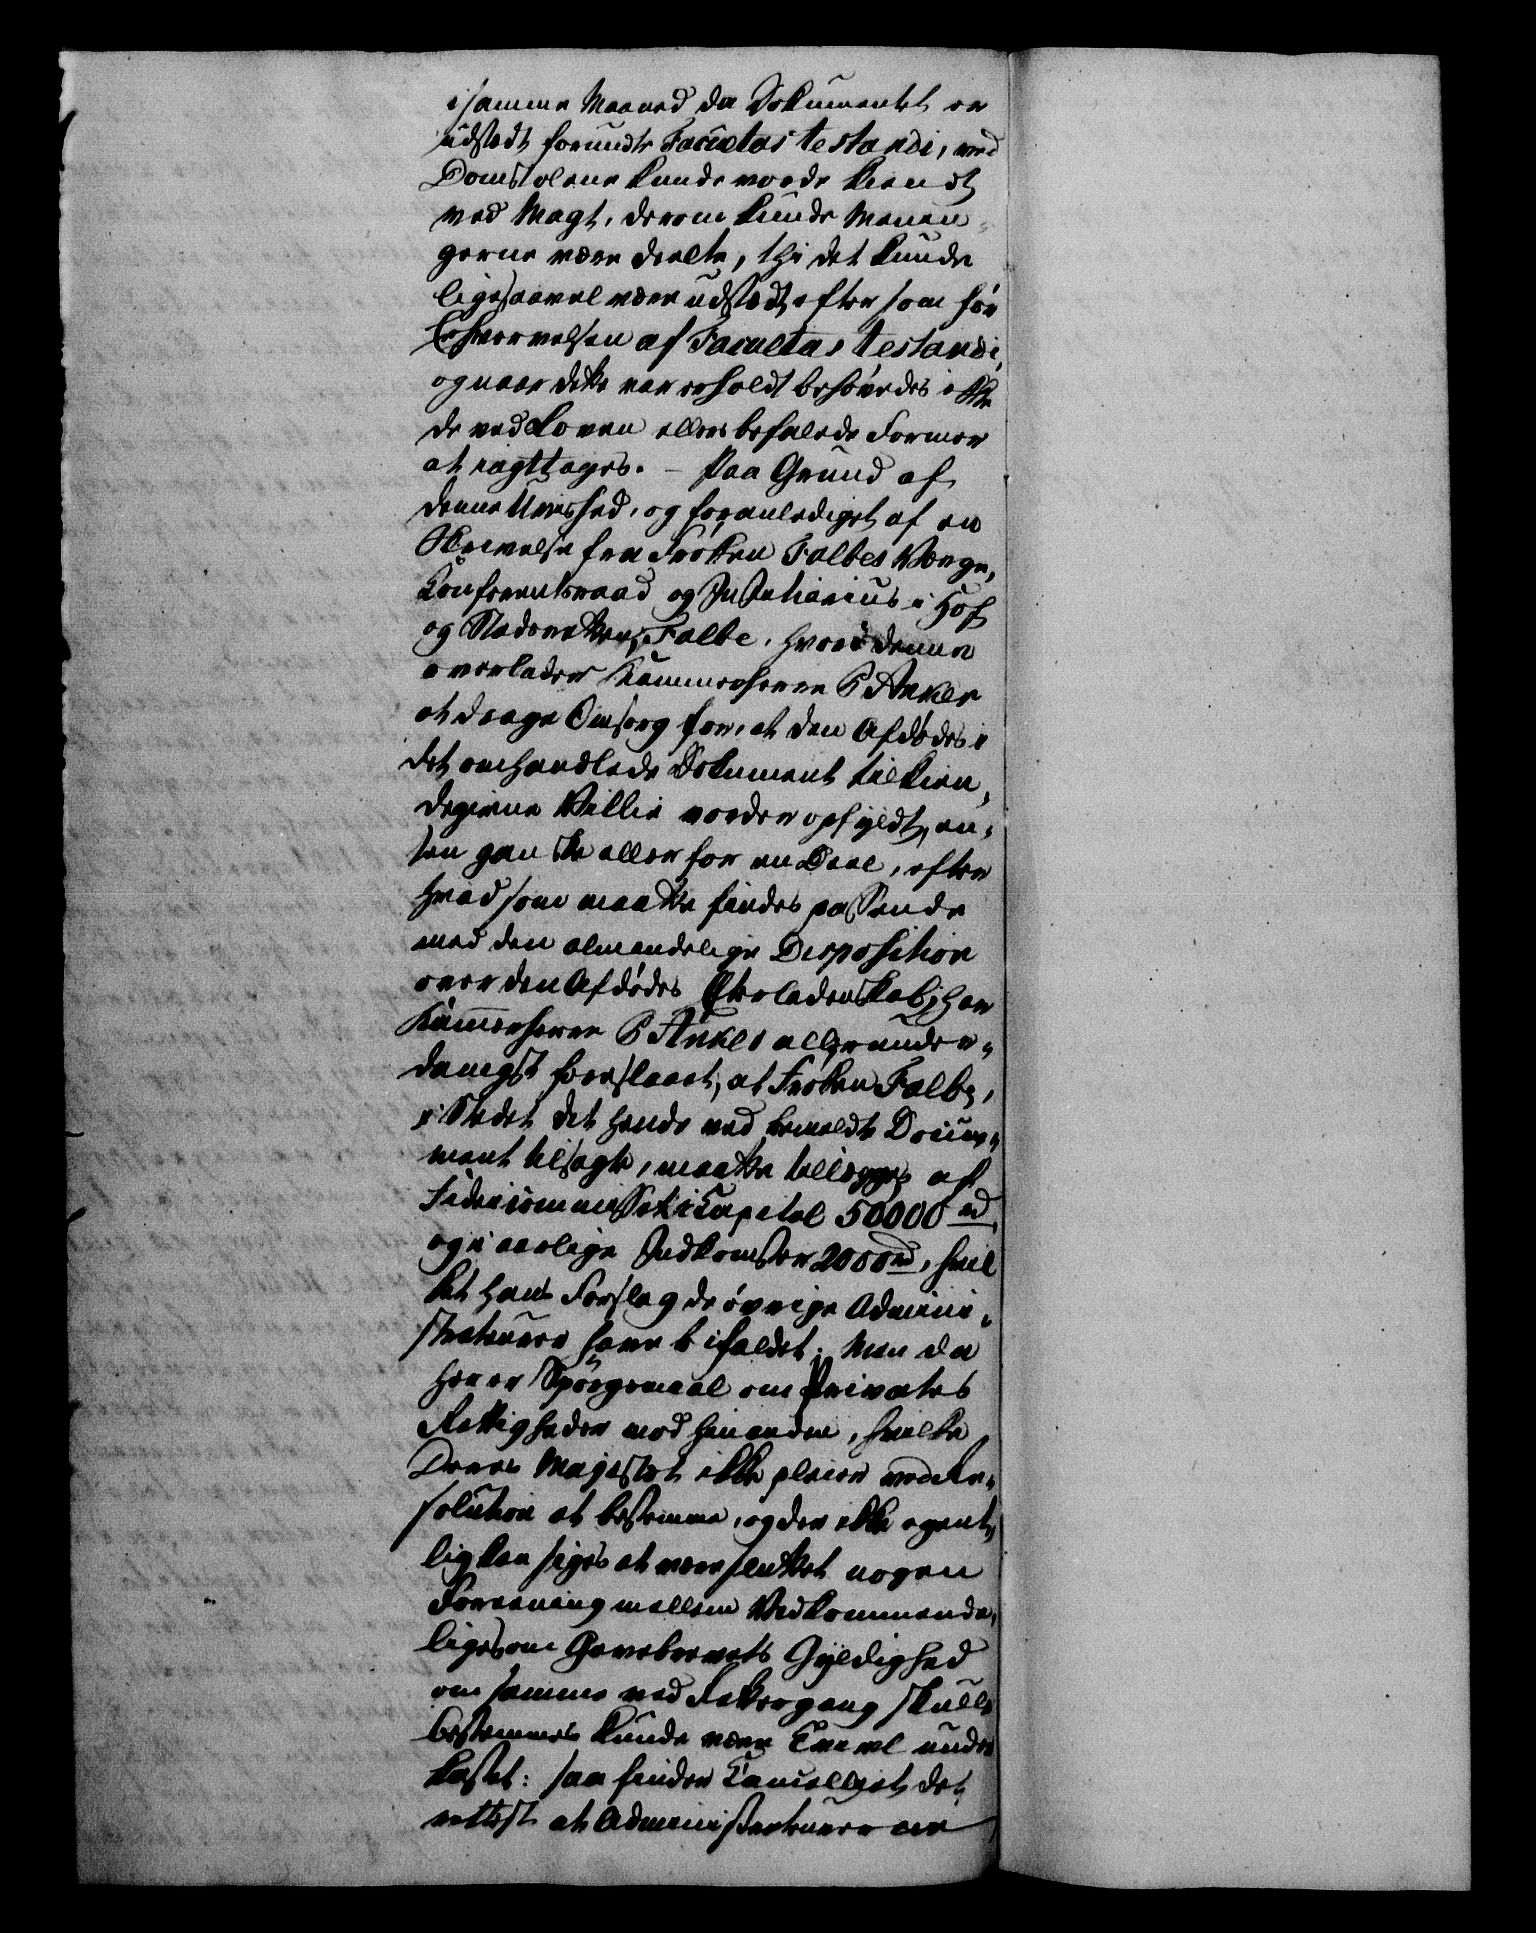 i samme Maaned da Dokumentet er
udstedt forundte Facultas testandi, ved
Domstolene kunde vorde kiendt
ved Magt, derom kunde Menin-
gerne være deelte, thi det kunde
ligesaavel være udstedt efter som før
Erhvervelsen af Facultas testandi,
og naar dette var erholdt behøvedes ikke
de ved Loven ellers befalede Former
at iagttages. – Paa Grund af
denne Uvished, og foranlediget af en
Skrivelse fra Frøken Falbes Værge,
Conferentsraad og Justitiarius i Hof
og Stadsretten Falbe, hvori denne
overlader Kammerherre P Anker
at drage Omsorg for, at den Afdødes i
det omhandlede Dokument tilkien-
degivne Villie vorder opfyldt, en-
ten ganske eller for en Deel, efter
hvad som maatte findes passende
med den almindelige Disposition
over den Afdødes Efterladenskab, har
Kammerherre P Anker allerunder-
danigst foreslaaet, at Frøken Falbe,
i Stedet det hende ved bemeldte Docu-
ment tilsagte, maatte tillægges af
Fideicommisset i Capital 50000 rd
og i aarlige Indkomster 2000 rd, hvil
ket hans Forslag de øvrige Admini-
strateurer have bifaldet. Men da
her er Spørgsmaal om Privates
Rettigheder mod hinanden, hvilke
Deres Majestæt ikke pleier ved Re-
solution at bestemme, og der ikke egent-
lig kan siges at være sluttet nogen
Foreening mellem Vedkommende,
ligesom Gavebrevets Gyldighed
om samme ved Rettergang skulle
bestemmes kunde være Tvivl under
kastet: saa finder Cancelliet det
rettest at Administrateurerne